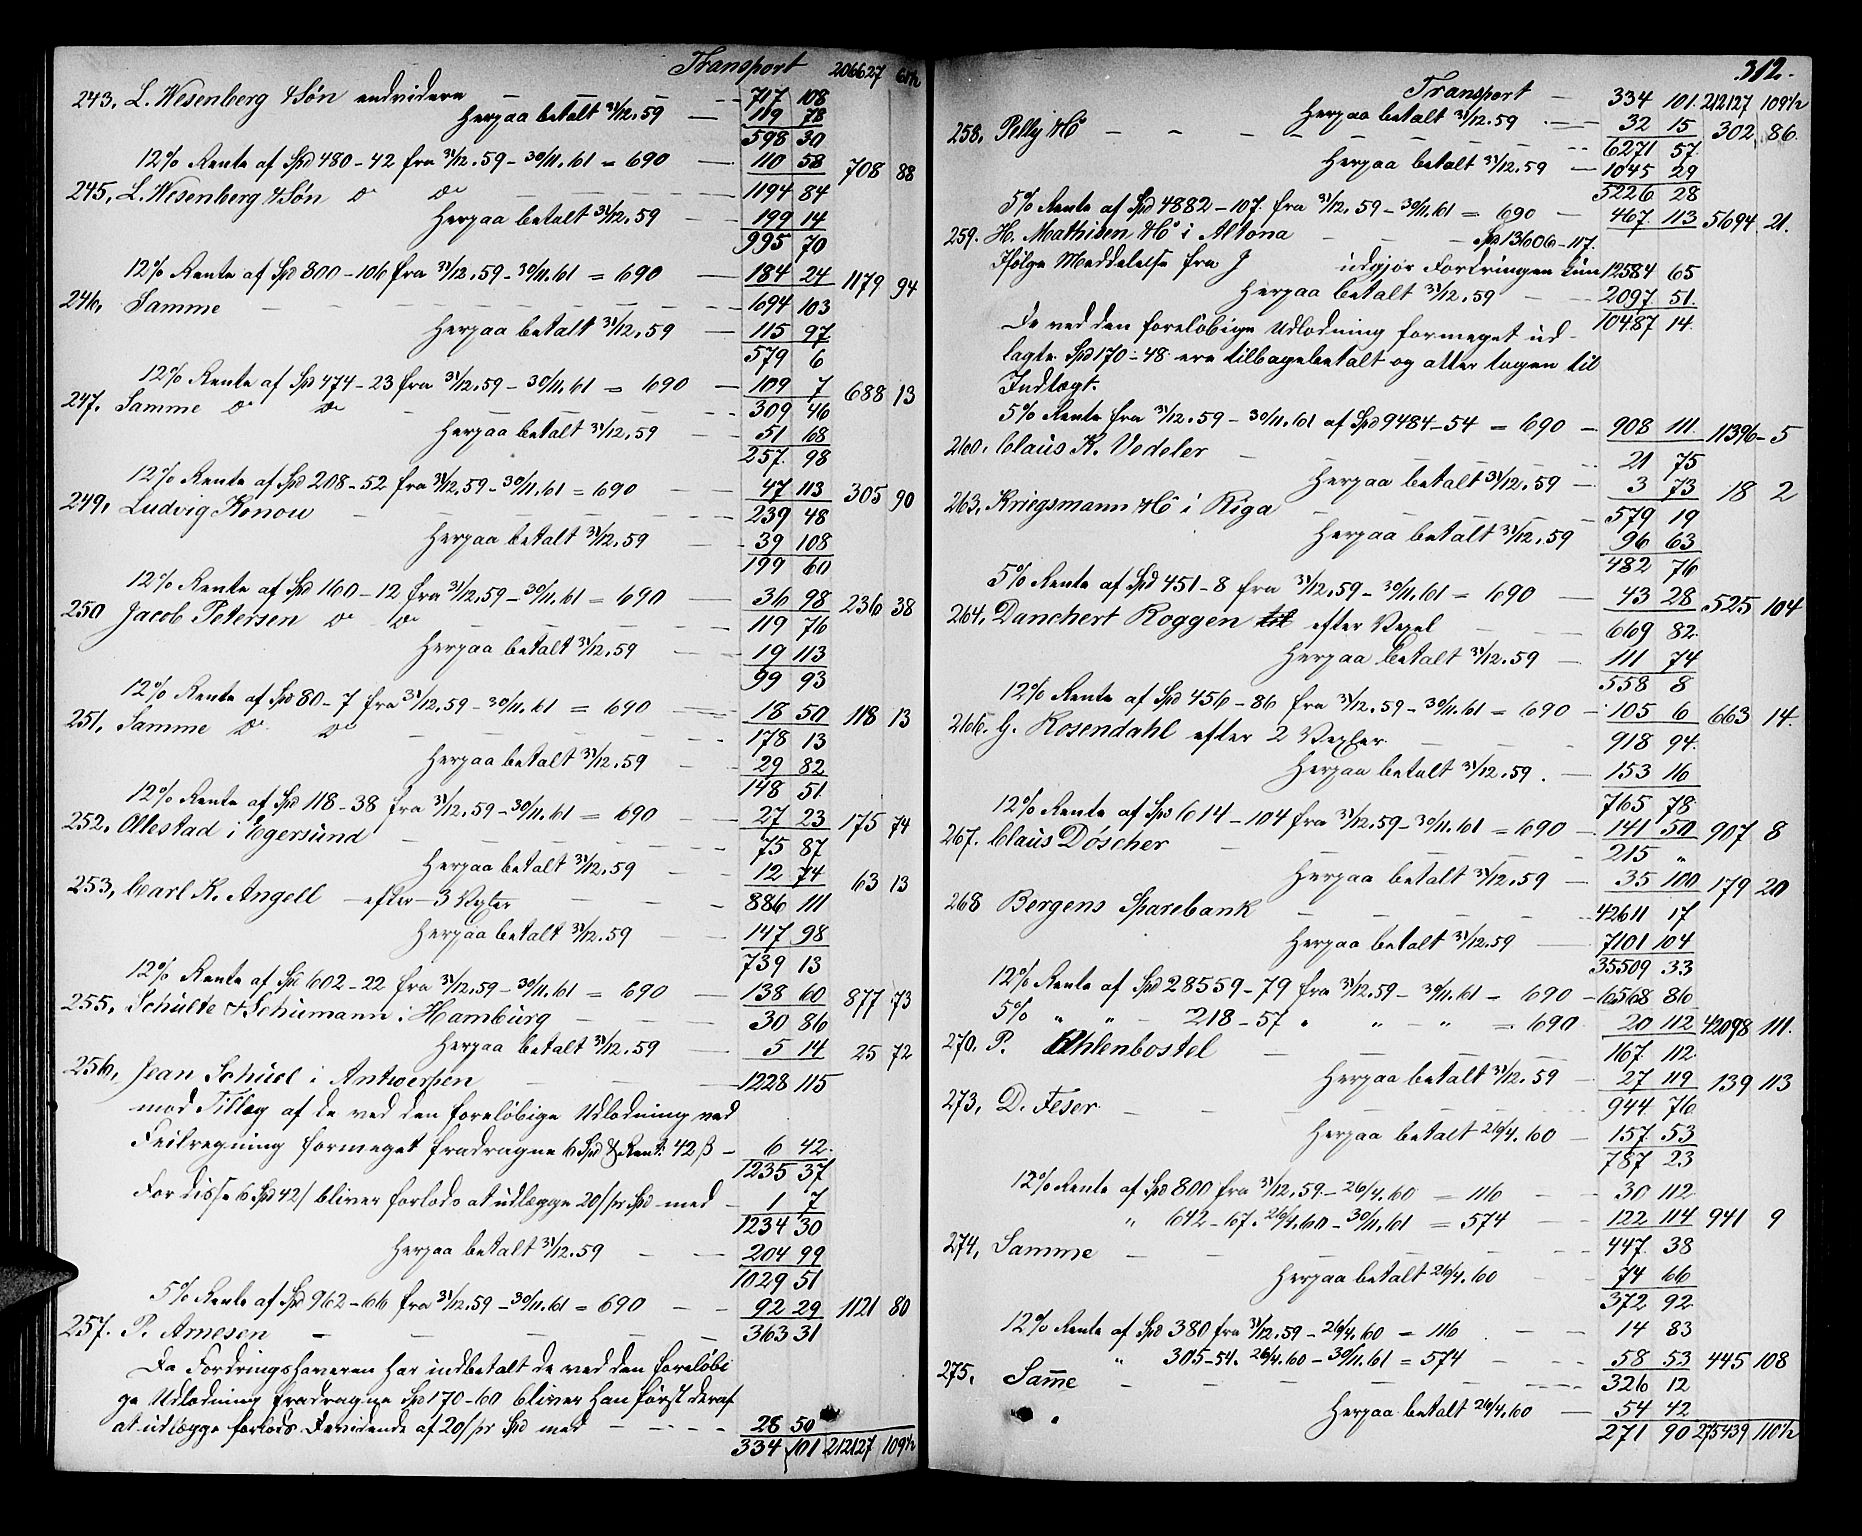 Transport 206627 61½
243, L. Wesenberg & Søn endvidere — — — 717 108
Herpaa betalt 31/12.59 — 119 78
598 30
12% Rente af Spd 480-42 fra 31/12.59-30/11.61 = 690 — 110 58 708 88
245, L. Wesenberg & Søn do do — — — 1194 84
Herpaa betalt 31/12.59 — 199 14
995 70
12% Rente af Spd 800-106 fra 31/12.59-30/11.61 = 690 — 184 24 1179 94
246, Samme — — — 694 103
Herpaa betalt 31/12.59 — 115 97
579 6
12% Rente af Spd 474-23 fra 31/12.59-30/11.61 = 690 — 109 7 688 13
247. Samme do do — — — 309 46
Herpaa betalt 31/12.59 — 51 68
257 98
12% Rente af Spd 208-52 fra 31/12.59-30/11.61 = 690 — 47 113 305 90
249, Ludvig Konow — — — 239 48
Herpaa betalt 31/12.59 — 39 108
199 60
12% Rente af Spd 160-12 fra 31/12.59-30/11.61 = 690 — 36 98 236 38
250 Jacob Petersen do do — — — 119 76
Herpaa betalt 31/12.59 — 19 113
99 93
12% Rente af Spd 80-7 fra 31/12.59-30/11.61 = 690 — 18 50 118 13
251, Samme do do — — — 178 13
Herpaa betalt 31/12.59 — 29 82
148 51
12% Rente af Spd 118-38 fra 31/12.59-30/11.61 = 690 — 27 23 175 74
252, Ollestad i Egersund — — — 75 87
Herpaa betalt 31/12.59 — 12 74 63 13
253, Carl K. Angell — efter 3 Vexler — — — 886 111
Herpaa betalt 31/12.59 — 147 98
739 13
12% Rente af Spd 602-22 fra 31/12.59-30/11.61 = 690 — 138 60 877 73
255, Schulte & Schumann i Hamburg — — — 30 86
Herpaa betalt 31/12.59 — 5 14 25 72
256, Jean Schuel i Antwerpen — — — 1228 115
med Tillæg af de ved den foreløbige Udlodning ved
Feilregning formeget fradragne 6 Spd & Rent. 42 ß — 6 42.
1235 37
For disse 6 Spd 42ß bliver forlods at udlægge 20ß pr Spd med — 1 7
1234 30
Herpaa betalt 31/12.59 — 204 99
1029 51
5% Rente af Spd 962-66 fra 31/12.59-30/11.61 = 690 — 92 29 1121 80
257. P. Arnesen — — — 363 31
Da Fordringshaveren har indbetalt de ved den foreløbi
ge Udlodning fradragne Spd 170-60 bliver han først deraf
at udlægge forlods Dividende af 20ß pr Spd med — 28 50
334 101 212127 109½
312.
Transport — 334 101 212127 109½
Herpaa betalt 31/12.59 — 32 15 302 86.
258, Pelly & Co — — — 6271 57
Herpaa betalt 31/12.59 — 1045 29
5226 28
5% Rente af Spd 4882-107. fra 31/12.59-30/11.61 = 690 — 467. 113 5694 21.
259. H. Mathisen & Co i Altona — — Spd 13606-117.
Ifølge Meddelelse fra udgjør Fordringen kun 12584 65
Herpaa betalt 31/12.59 — 2097 51.
10487 14.
De ved den foreløbige Udlodning formeget ud-
lagte Spd 170-48 ere tilbagebetalt og atter tagen til
Indtægt.
5% Rente fra 31/12.59-30/11.61 af Spd 9484-54 = 690 — 908 111 11396 - 5
260, Claus K. Vedeler — — — 21 75
Herpaa betalt 31/12.59 — 3 73 18 2
263, Kriegsmann & Co i Riga — — — 579 19
Herpaa betalt 31/12.59 96 63
482 76
5% Rente af Spd 451-8 fra 31/12.59-30/11.61 = 690 — 43 28 525 104
264, Danchert Roggen efter Vexel — — — 669 82.
Herpaa betalt 31/12.59 — 111 74
558 8
12% Rente af Spd 456-86 fra 31/12.59-30/11.61 = 690 — 105 6 663 14.
266. G. Rosendahl efter 2 Vexler — — — 918 94.
Herpaa betalt 31/12.59. — 153 16
765 78
12% Rente af Spd 614-104 fra 31/12.59-30/11.61 = 690 — 141 50 907 8
267. Claus Döscher — — — 215 "
Herpaa betalt 31/12.59 — 35 100 179 20
268 Bergens Sparebank — — — 42611 17
Herpaa betalt 31/12.59 — 7101 104
35509 33
12% Rente af Spd 28559-79 fra 31/12.59-30/11.61 = 690 — 6568 86
5% " " — 218-57 " " — " = 690 20 112 42098 111.
270. P. Ahlenbostel — — — 167. 112.
Herpaa betalt 31/12.59 — 27 119 139 113
273, D. Feser — — — 944 76
Herpaa betalt 26/4.60 — 157 53
787 23
12% Rente af Spd 800 fra 31/12.59-26/4.60 = 116 — 30 112
" 642-67. 26/4.60-30/11.61 = 574 — 122 114 941 9
274, Samme — — — 447. 38
Herpaa betalt 26/4.60 — 74 66
372 92
12% Rente af Spd 380 fra 31/12.59-26/4.60 = 116 — 14 83
" 305-54. 26/4.60-30/11.61 = 574 — 58 53 445 108
275. Samme — — — 326 12
" Herpaa betalt 26/4.60 — 54 42
271 90 275439 110½